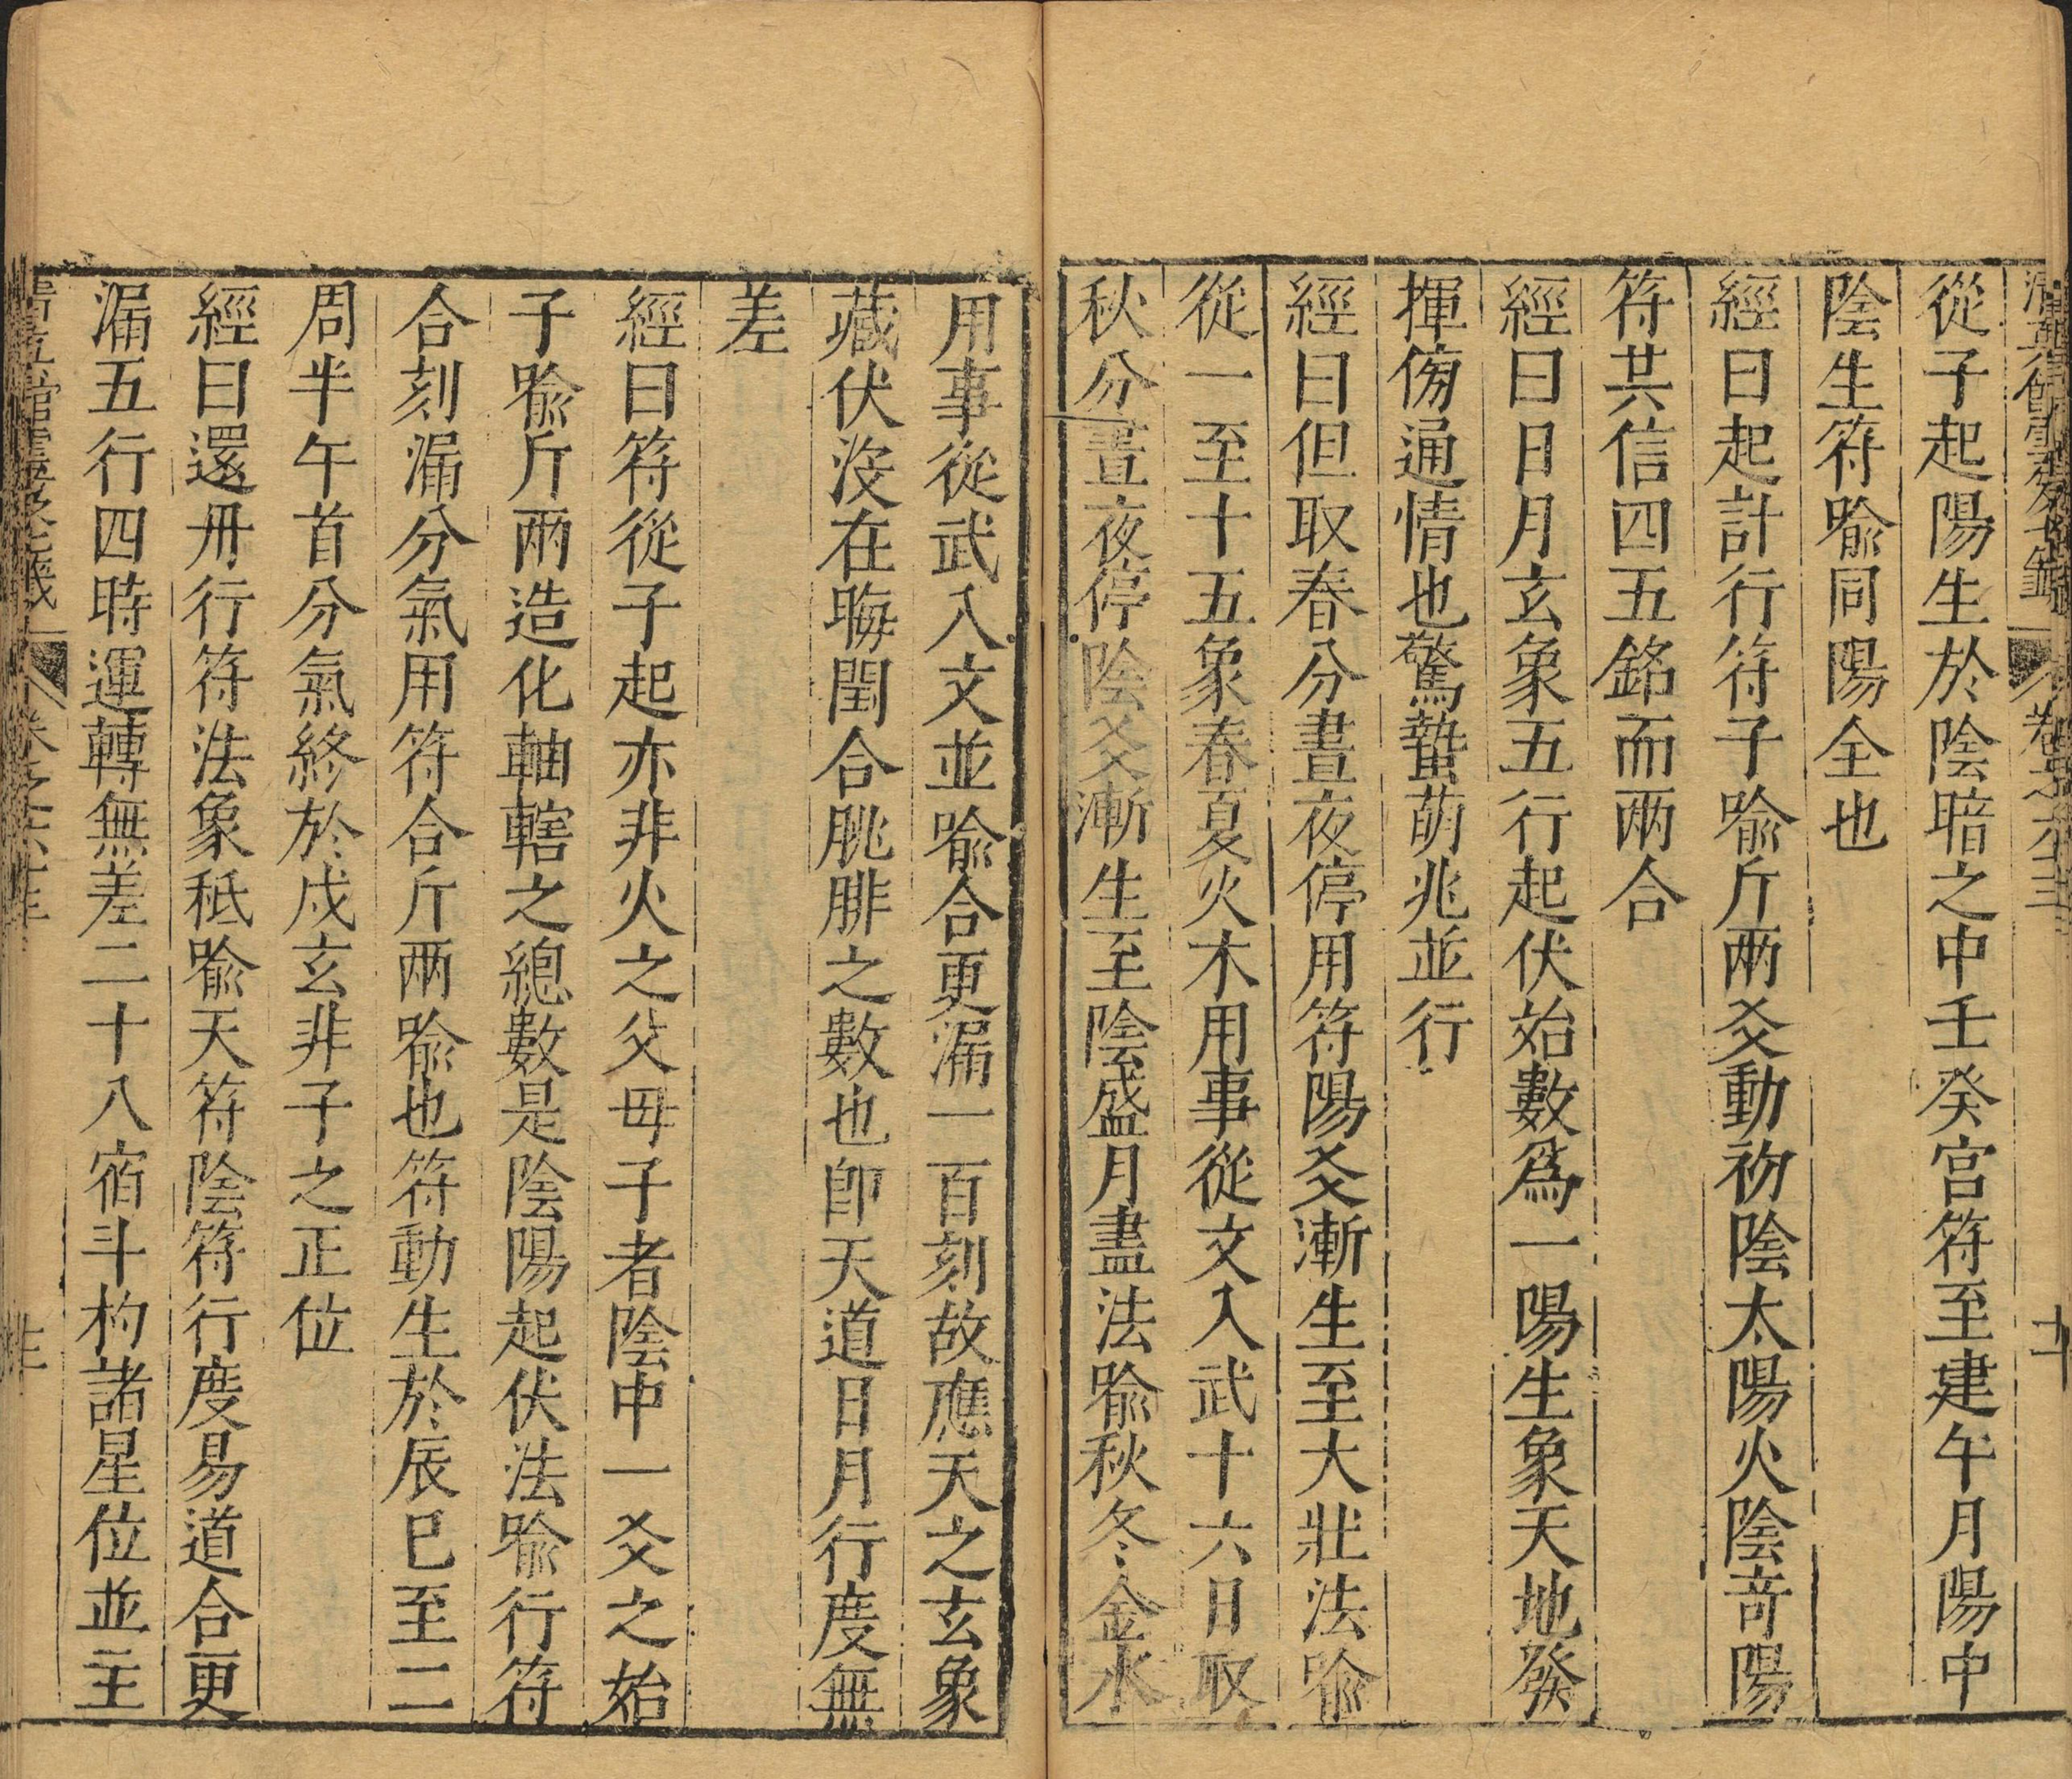 從子起陽生於陰暗之中壬癸宮符至建午月陽中
陰生符喻同陽全也
經曰起計行符子喻斤兩爻動初陰太陽火陰竒陽
符共信四五銘而兩合
經曰日月玄象五行起伏始數爲一陽生象天地發
揮傍通情也驚蟄萌兆並行
經曰但取春分晝夜停用符陽爻漸生至大壯法喻
從一至十五象春夏火木用事從文入武十六日取
秋分晝夜停陰爻漸生至陰盛月盡法喻秋冬金水
用事從武入文並喻合更漏一百刻故應天之玄象
藏伏沒在晦閏合朓腓之數也卽天道日月行度無
差
經曰符從子起亦非火之父母子者陰中一爻之始
子喻斤兩造化軸轄之總數是陰陽起伏法喻行符
合刻漏分氣用符合斤兩喻也符動生於辰巳至二
周半午首分氣終於戌玄非子之正位
經曰還丹行符法象秪喻天符陰符行度易道合更
漏五行四時運轉無差二十八宿斗杓諸星位並主